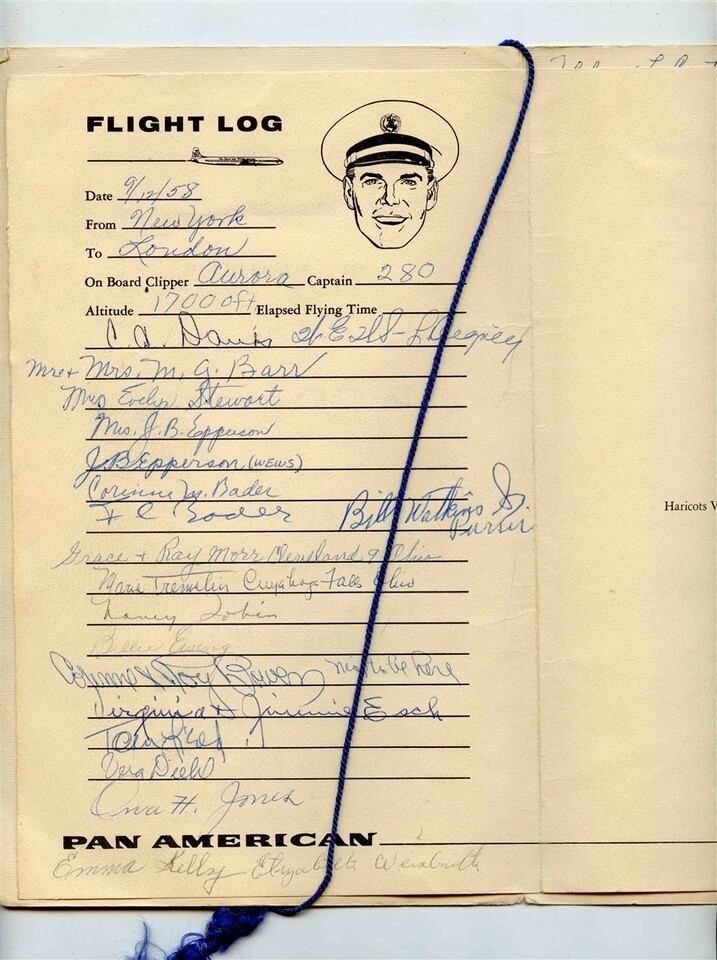 FLIGHT LOG
Date 9/12/58
From New York
To London
On Board Clipper Aurora Captain 280
Altitude 17000 ft Elapsed Flying Time
C. A. Davis
Mr & Mrs. M. G. Barr
Mrs Evelyn Stewart
Mrs. J. B. Epperson
J B Epperson (WEWS)
Corinne M. Bader
F C Bader
Bill Watkins Sr
Purser
Haricots V
Grace & Ray Morr Cleveland 9 Ohio
Cuyahoga Falls Ohio
Nancy Tobin
Billie Ewing
Nice to be here
Virginia & Jimmie Esch
Vera Diehl
H. Jones
PAN AMERICAN
Emma Kelly Elizabeth